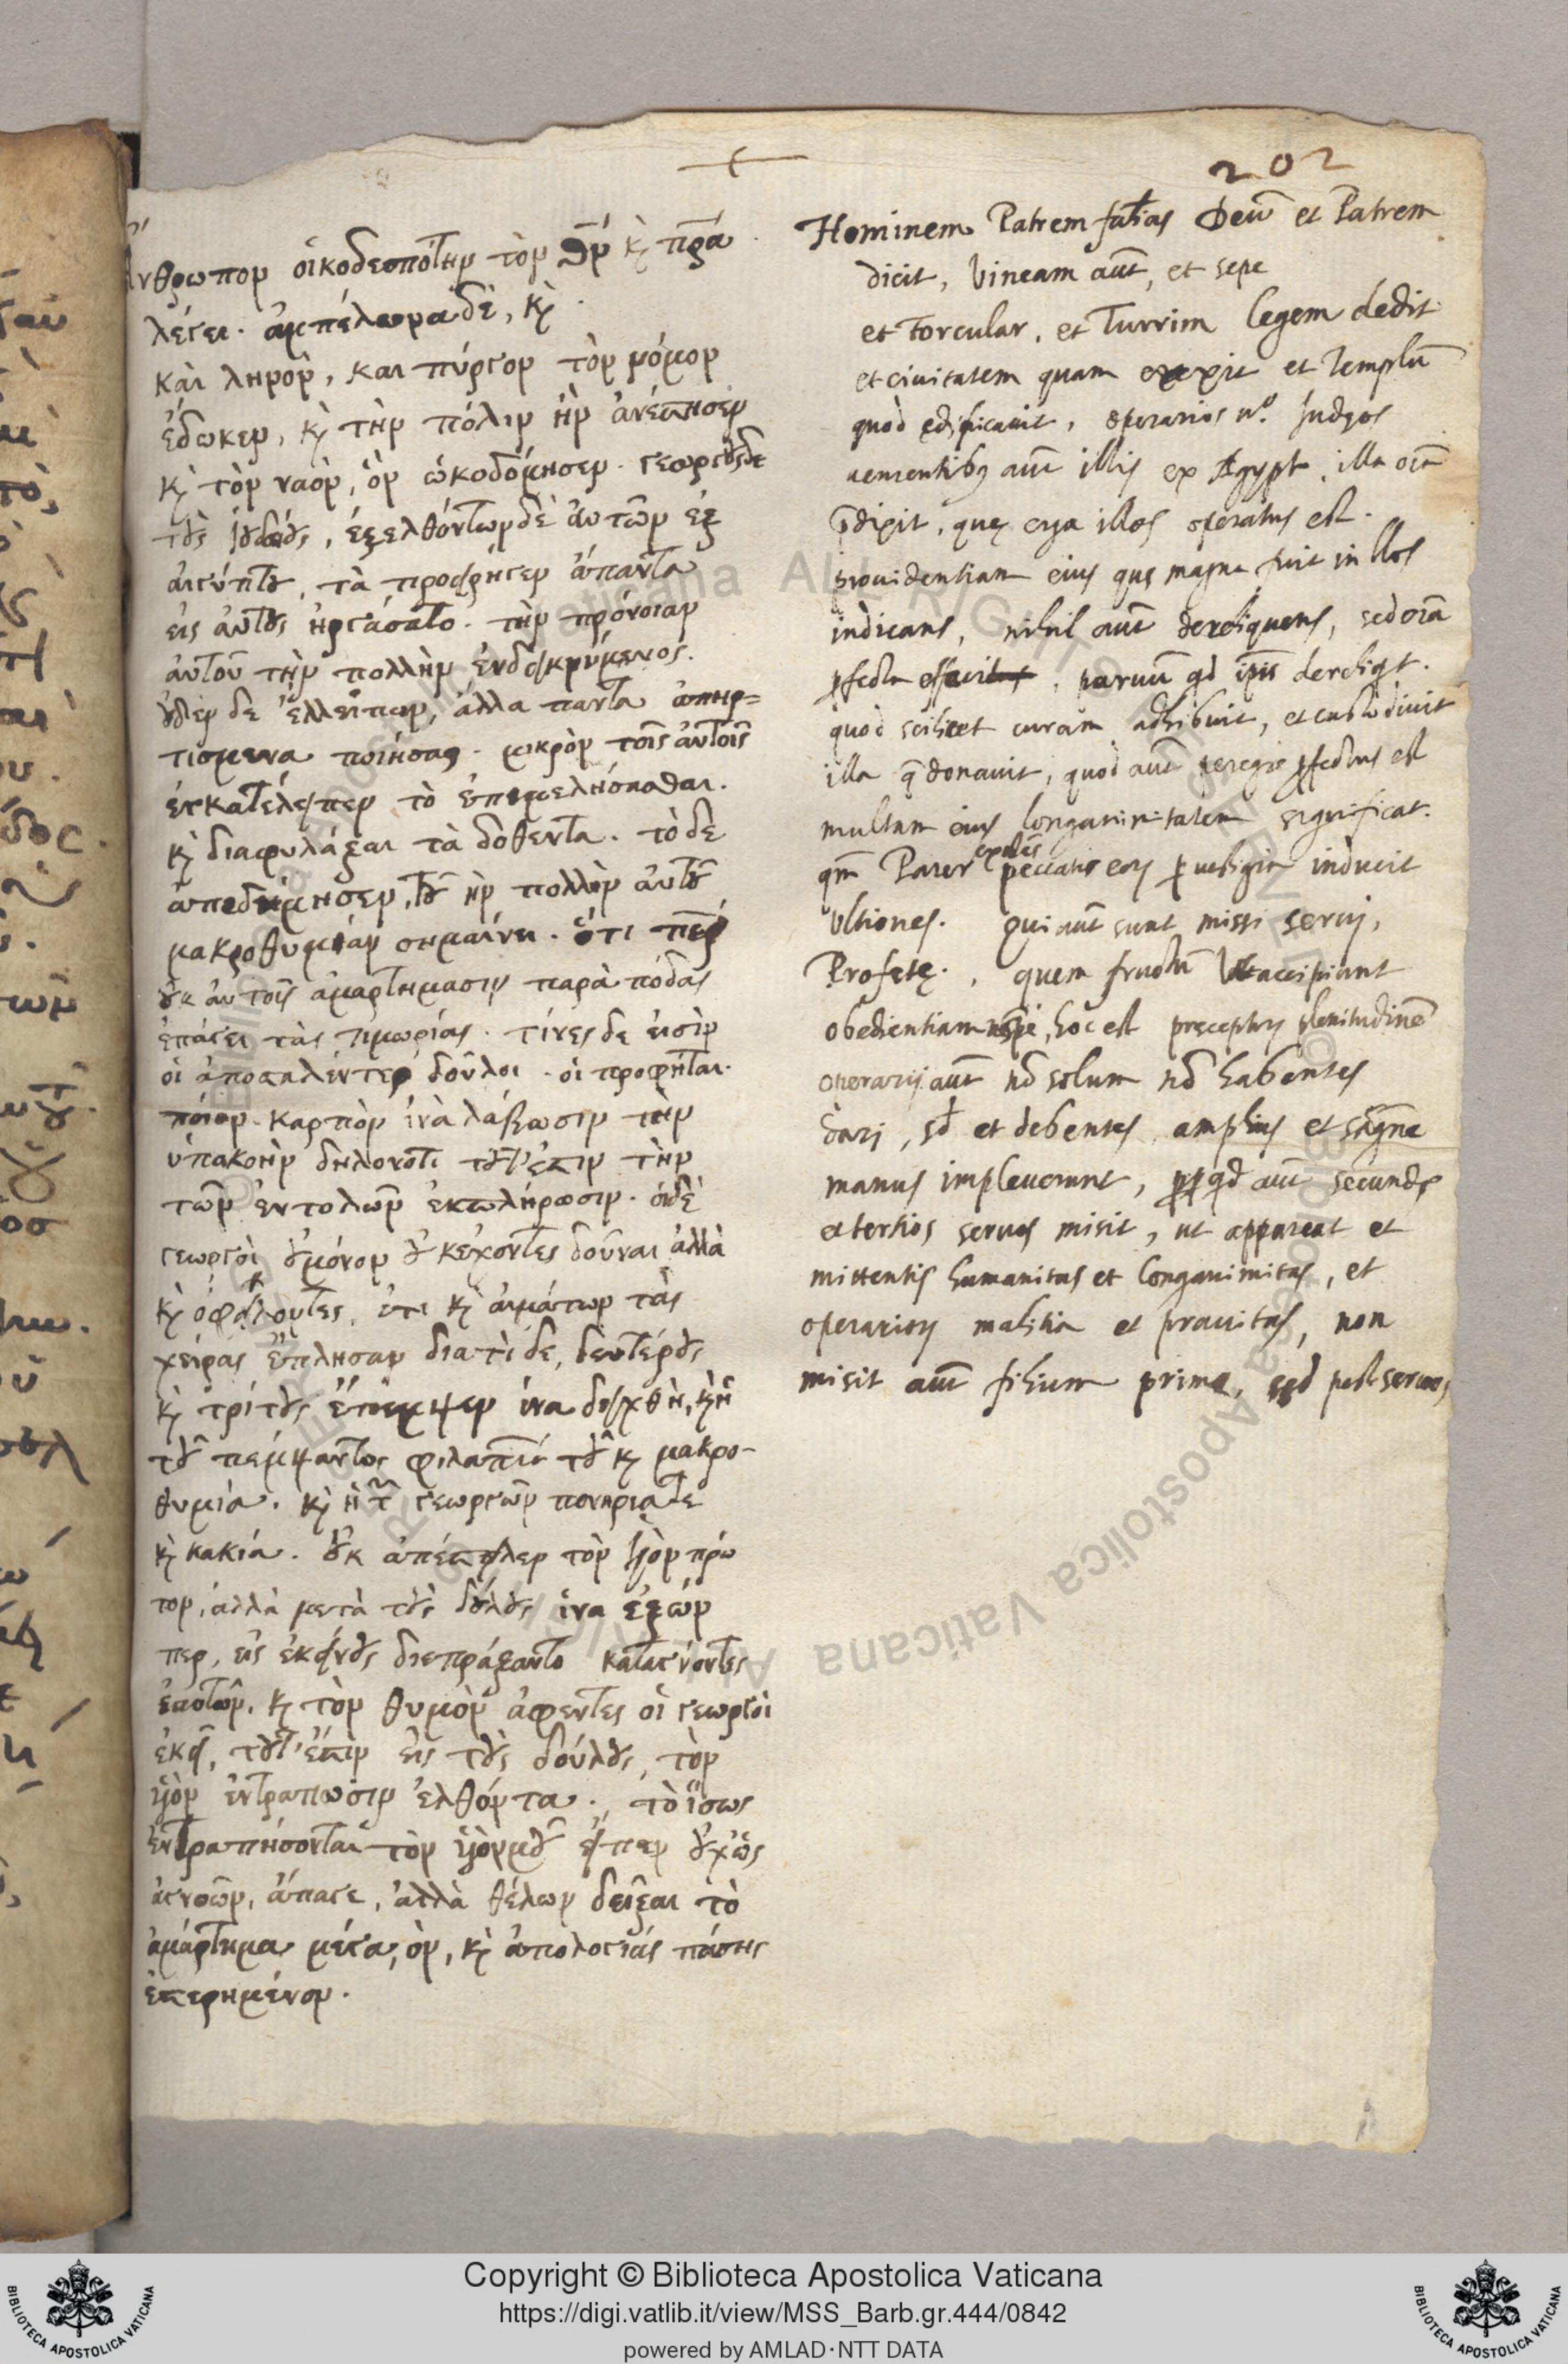 202
Ἄνθρωπον οἰκοδεσπότην τὸν θν κ πρα
λέγει. ἀμπέλωνα δὲ, κ
καὶ ληνὸν, και πύργον τὸν νόμον
ἔδωκεν, κ τὴν πόλιν ἣν ἀνέστησεν
κ τὸν ναὸν, ὃν ὠκοδόμησεν. γεωργοὺς δε
τοὺς, ἐξελθόντων δὲ αὐτῶν ἐξ
αἰγύπτου, τὰ ἅπαντα
εἰς αὐτοὺς ἠργάσατο. τὴν πρόνοιαν
αὐτοῦ τὴν πολλὴν ἐνδεικνύμενος.
οὐδὲν δε ἐλλείπων, ἀλλα παντα ἀπηρ=
τισμενα ποιήσας. μικρὸν τοῖς αὐτοῖς
ἐγκατέλειπεν τὸ
κ διαφυλάξαι τὰ δοθεντα. τὸ δε
ἀπεδήμησεν, πολλὴν αὐτοῦ
μακροθυμίαν σημαίνει. ὅτι
οὐκ αὐτοῖς ἁμαρτήμασιν παρὰ πόδας
ἐπάγει τὰς τιμωρίας. τίνες δε εἰσὶν
οἱ ἀποσταλέντες δοῦλοι. οἱ προφῆται.
ποίον καρπὸν ἱνὰ λάβωσιν τὴν
ὑπακοὴν δηλονότι τουτέστιν τὴν
τῶν ἐντολῶν ἐκπλήρωσιν. οἱ δὲ
γεωργοὶ οὐ μόνον οὐκ ἔχοντες δοῦναι ἀλλὰ
κ ὀφείλοντες, ἔτι κ αἱμάτων τὰς
χεῖρας ἔπλησαν διατὶ δε, δευτέρους
κ τρίτους ἔπεμψεν ἱνα δειχθῆ, κ ἡ
τοῦ πέμψαντος κ μακρο-
θυμία. κ ἡ τ γεωργῶν πονηρια τε
κ κακία. οὐκ ἀπέστειλεν τὸν υἱὸν πρῶ
τον, ἀλλὰ μετὰ τοὺς δούλους ἵνα ἐξ ὧν
περ, εἰς ἐκείνους διεπράξαντο καταγνόντες
ἑαυτῶν, κ τὸν θυμὸν ἀφεντες οἱ γεωργοὶ
τουτέστιν εἰς τοὺς δούλους, τὸν
υἱὸν ἐντραπῶσιν ἐλθόντα. τὸ ἴσως
ἐντραπήσονται τὸν υἱόν μου εἶπεν οὐχ ὡς
ἀγνοῶν, ἄπαγε, ἀλλὰ θέλων δεῖξαι τὸ
ἁμάρτημα μέγα, ὂν, κ ἀπολογίας πάσης
ἐστερημένον.
Hominem Patrem falias Deū et Patrem
dicit, Vineam aūt, et sepe
et Torcular, et Turrim legem dedit
et ciuitatem quam erexit et Templū
quòd edificauit, operarios Iudęos
uenientibq aūt illis ex Ægypt, illa oīa
quę erga illos operatus est.
prouidentiam eius quę magna fuit in llos
indicans, nihil aūt derelinquens, sed oīa
paruū qd ipīs
quòd scilicet curam adhibuit, et custodiuit
illa donauit, quod aūt peregre pfectus est
multam eius longanimitatem significat.
qm Pater peccatis eorum p uestigia inducit
Vltiones. Qui aūt sunt missi serui,
Profetę. quem fructū Vt accipiant
obedientiam, hoc est preceptorum plenitudinē
operarij aūt nō solum nō habentes
dari, sd et debentes amplius et sāgne
manus impleuerunt, aūt secundos
et tertios seruos misit, ut appareat et
mittentis humanitas et longanimitas, et
operariorum malitia et prauitas, non
misit aūt filium primo, sed post seruos,
Copyright © Biblioteca Apostolica Vaticana
https://digi.vatlib.it/view/MSS_Barb.gr.444/0842
powered by AMLAD·NTT DATA